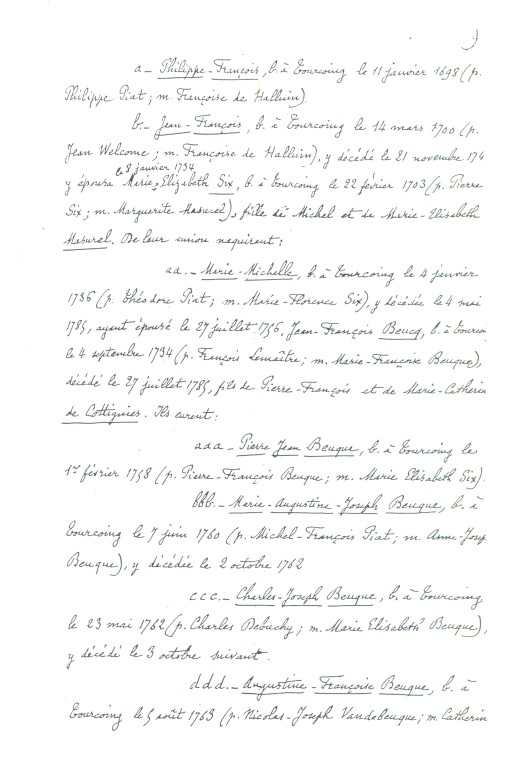 9
a - Philippe-François, b. à Tourcoing le 11 janvier 1698 (p.
Philippe Piat ; m. Françoise de Halluin).
b. - Jean - François, b. à Tourcoing le 14 mars 1700 (p.
Jean Welcome ; m. Françoise de Halluin), y décédé le 21 novembre 174
le 8 janvier 1734
y épousa Marie-Elizabeth Six, b. à Tourcoing le 22 février 1703 (p. Pierre
Six ; m. Marguerite Masurel), fille de Michel et de Marie-Elisabeth
Masurel. De leur union naquirent :
aa. - Marie - Michelle, b. à Tourcoing le 4 janvier
1736 (p. Théodore Piat ; m. Marie-Florence Six), y décédée le 4 mai
1785, ayant épousé le 27 juillet 1756, Jean-François Beucq, b. à Tourcoin
le 4 septembre 1734 (p. François Lemaître ; m. Marie-Françoise Beuque),
décédé le 27 juillet 1785, fils de Pierre-François et de Marie-Catherin
de Cottignies. Ils eurent :
aaa - Pierre Jean Beuque, b. à Tourcoing le
1er février 1758 (p. Pierre-François Beuque ; m. Marie Elisabeth Six).
bbb. - Marie-Augustine-Joseph Beuque, b. à
Tourcoing le 7 juin 1760 (p. Michel-François Piat ; m. Anne-Josep
Beuque), y décédée le 2 octobre 1762
ccc. - Charles-Joseph Beuque, b. à Tourcoing
le 23 mai 1762 (p. Charles Debuchy ; m. Marie Elisabeth Beuque),
y décédé le 3 octobre suivant.
ddd. - Augustine - Françoise Beuque, b. à
Tourcoing le 5 août 1763 (p. Nicolas-Joseph Vandebeuque ; m. Catherin